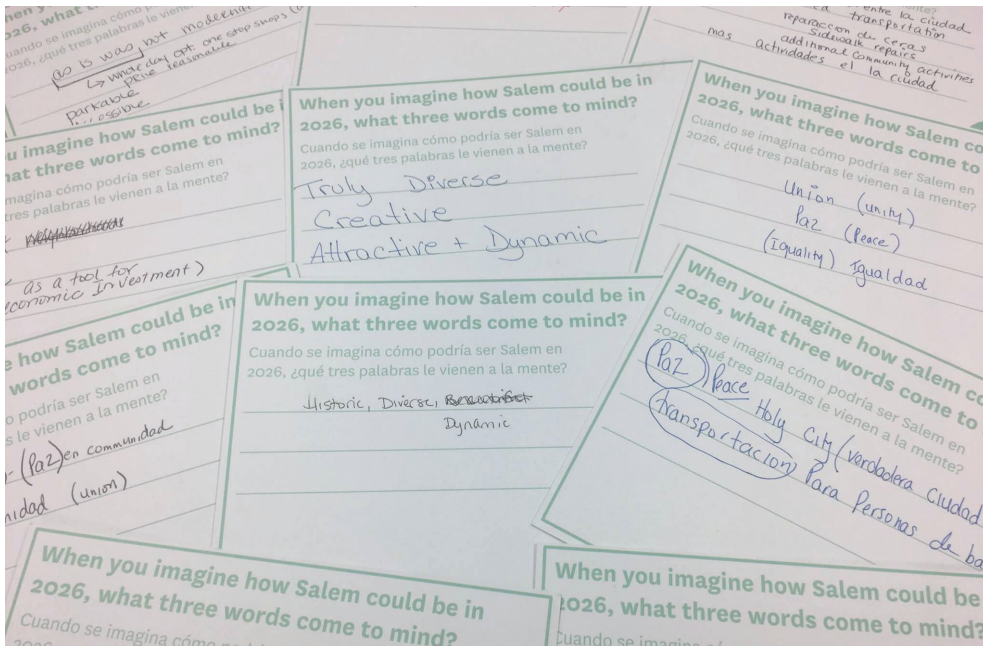 2026, what t
uando se imagina
026, ¿qué tres palabras
as is was, but modernit
↳ whole day opt. one stop shops
price reasonable
parkable
entre la ciudad
transportation
reparaccion de ceras
sidewalk repairs
additional community activities
mas actividades el la ciudad
u imagine how Salem could be i
hat three words come to mind?
magina cómo podría ser Salem en
tres palabras le vienen a la mente?
as a tool for
economic Investment)
When you imagine how Salem could be in
2026, what three words come to mind?
Cuando se imagina cómo podría ser Salem en
2026, ¿qué tres palabras le vienen a la mente?
Truly Diverse
Creative
Attractive + Dynamic
When you imagine how Salem co
2026, what three words come to
Cuando se imagina cómo podría ser Salem en
2026, ¿qué tres palabras le vienen a la mente?
Union (unity)
Paz (Peace)
(Iquality) Igualdad
e how Salem could be in
words come to mind?
o podría ser Salem en
s le vienen a la mente?
(Paz) en comunidad
nidad (union)
When you imagine how Salem could be in
2026, what three words come to mind?
Cuando se imagina cómo podría ser Salem en
2026, ¿qué tres palabras le vienen a la mente?
Historic, Diverse,
Dynamic
When you imagine how Salem c
2026, what three words come to
Cuando se imagina cómo podría ser Salem en
2026, ¿qué tres palabras le vienen a la mente?
Paz) Peace Holy City (verdadera Ciudad
transportacion Para Personas de ba
When you imagine how Salem could be in
2026, what three words come to mind?
Cuando se imagina cómo
When you imagine how Salem could be
2026, what three words come to mind?
Cuando se imagina cómo